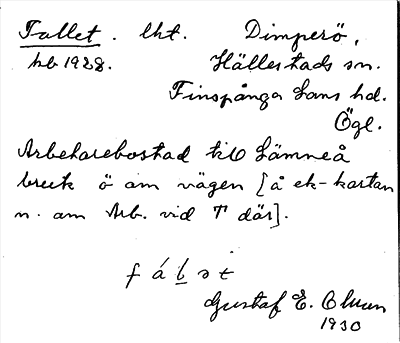 Tallet. lht. Dimperö,
hb 1928. Hällestads sn.
Finspånga Läns hd.
Ögl.
Arbetarebostad till Sämneå
bruk ö om vägen [å ek-kartan
n. om Arb. vid T där].
Gustaf E. Olsson
1930